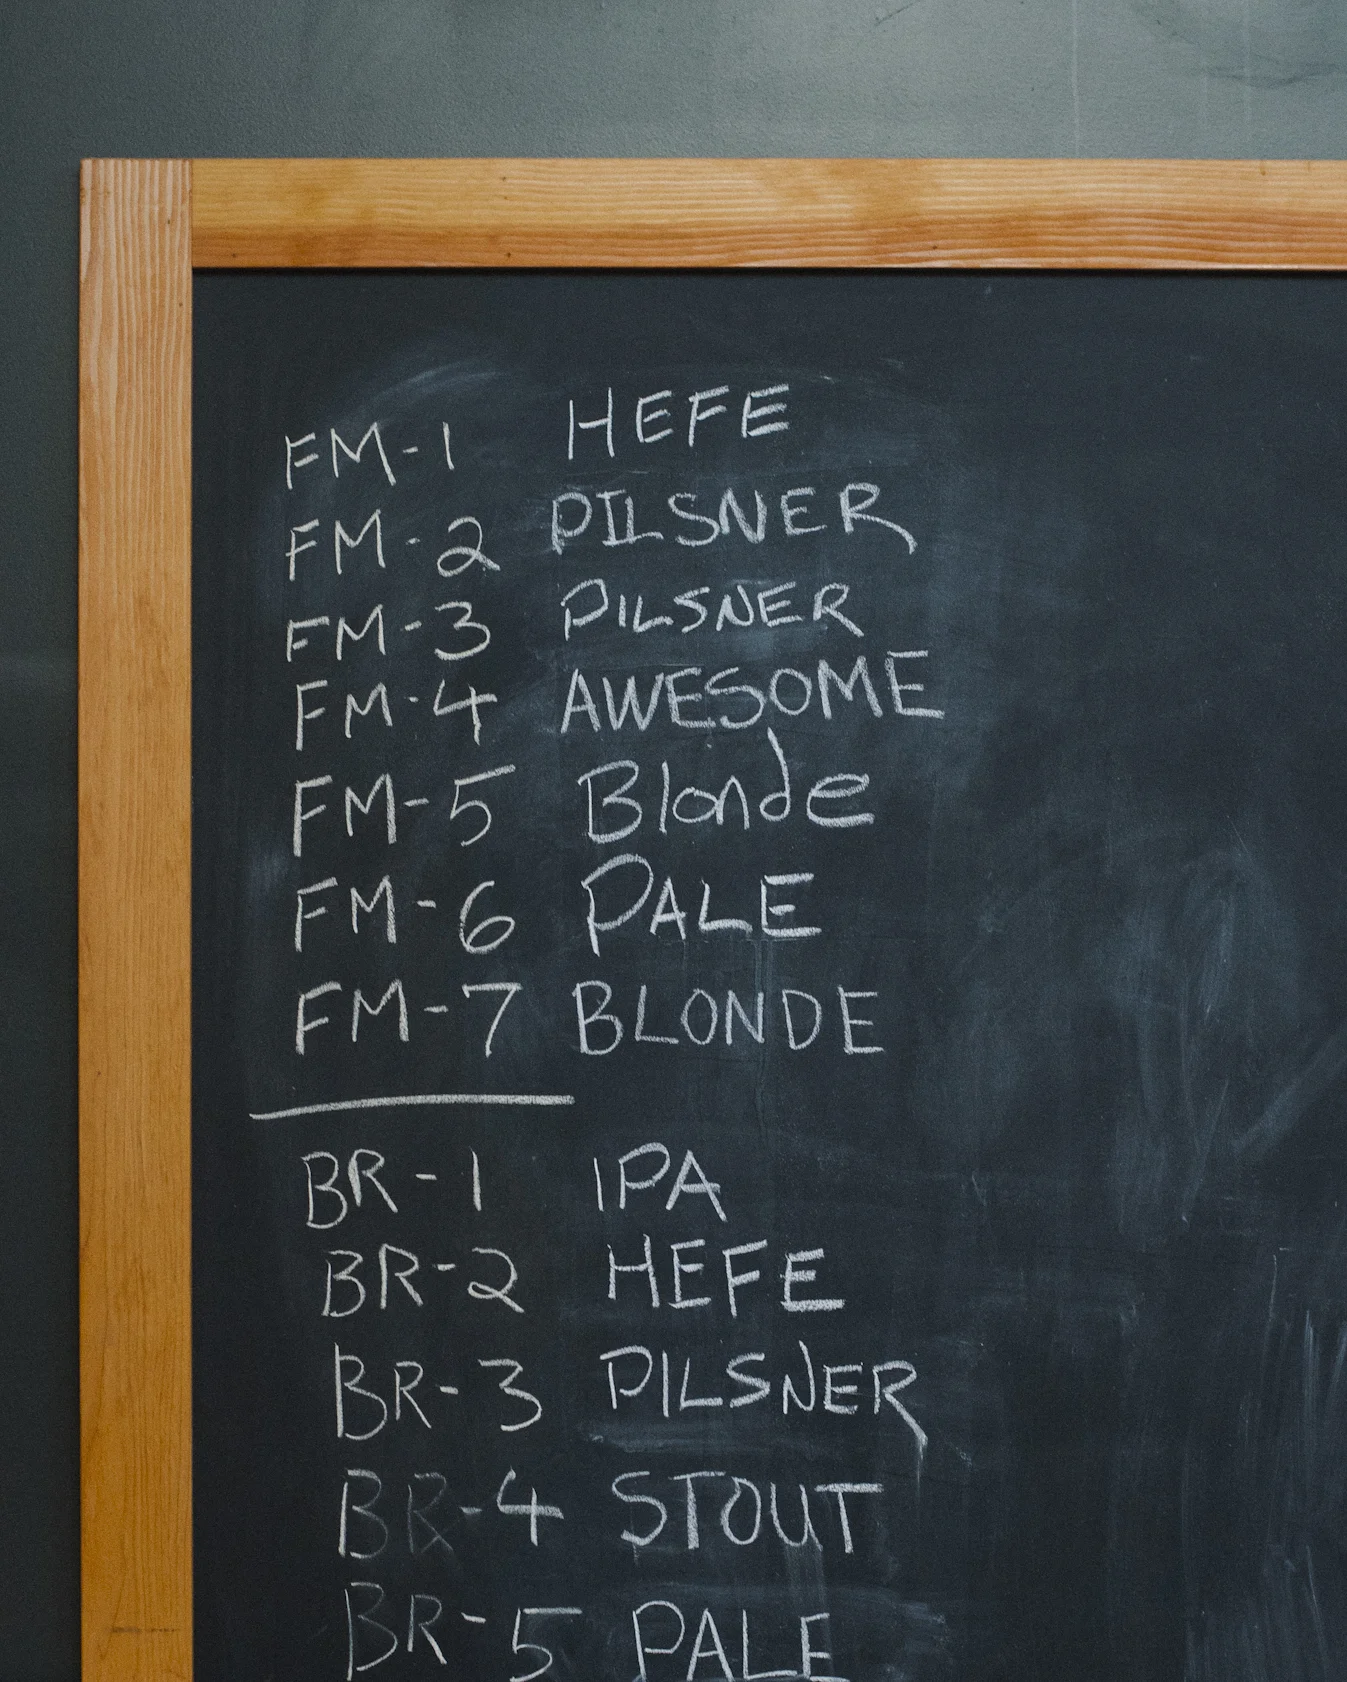 FM-1 HEFE
FM-2 PILSNER
FM-3 PILSNER
FM-4 AWESOME
FM-5 Blonde
FM-6 PALE
FM-7 BLONDE
BR-1 IPA
BR-2 HEFE
BR-3 PILSNER
BR-4 STOUT
BR-5 PALE